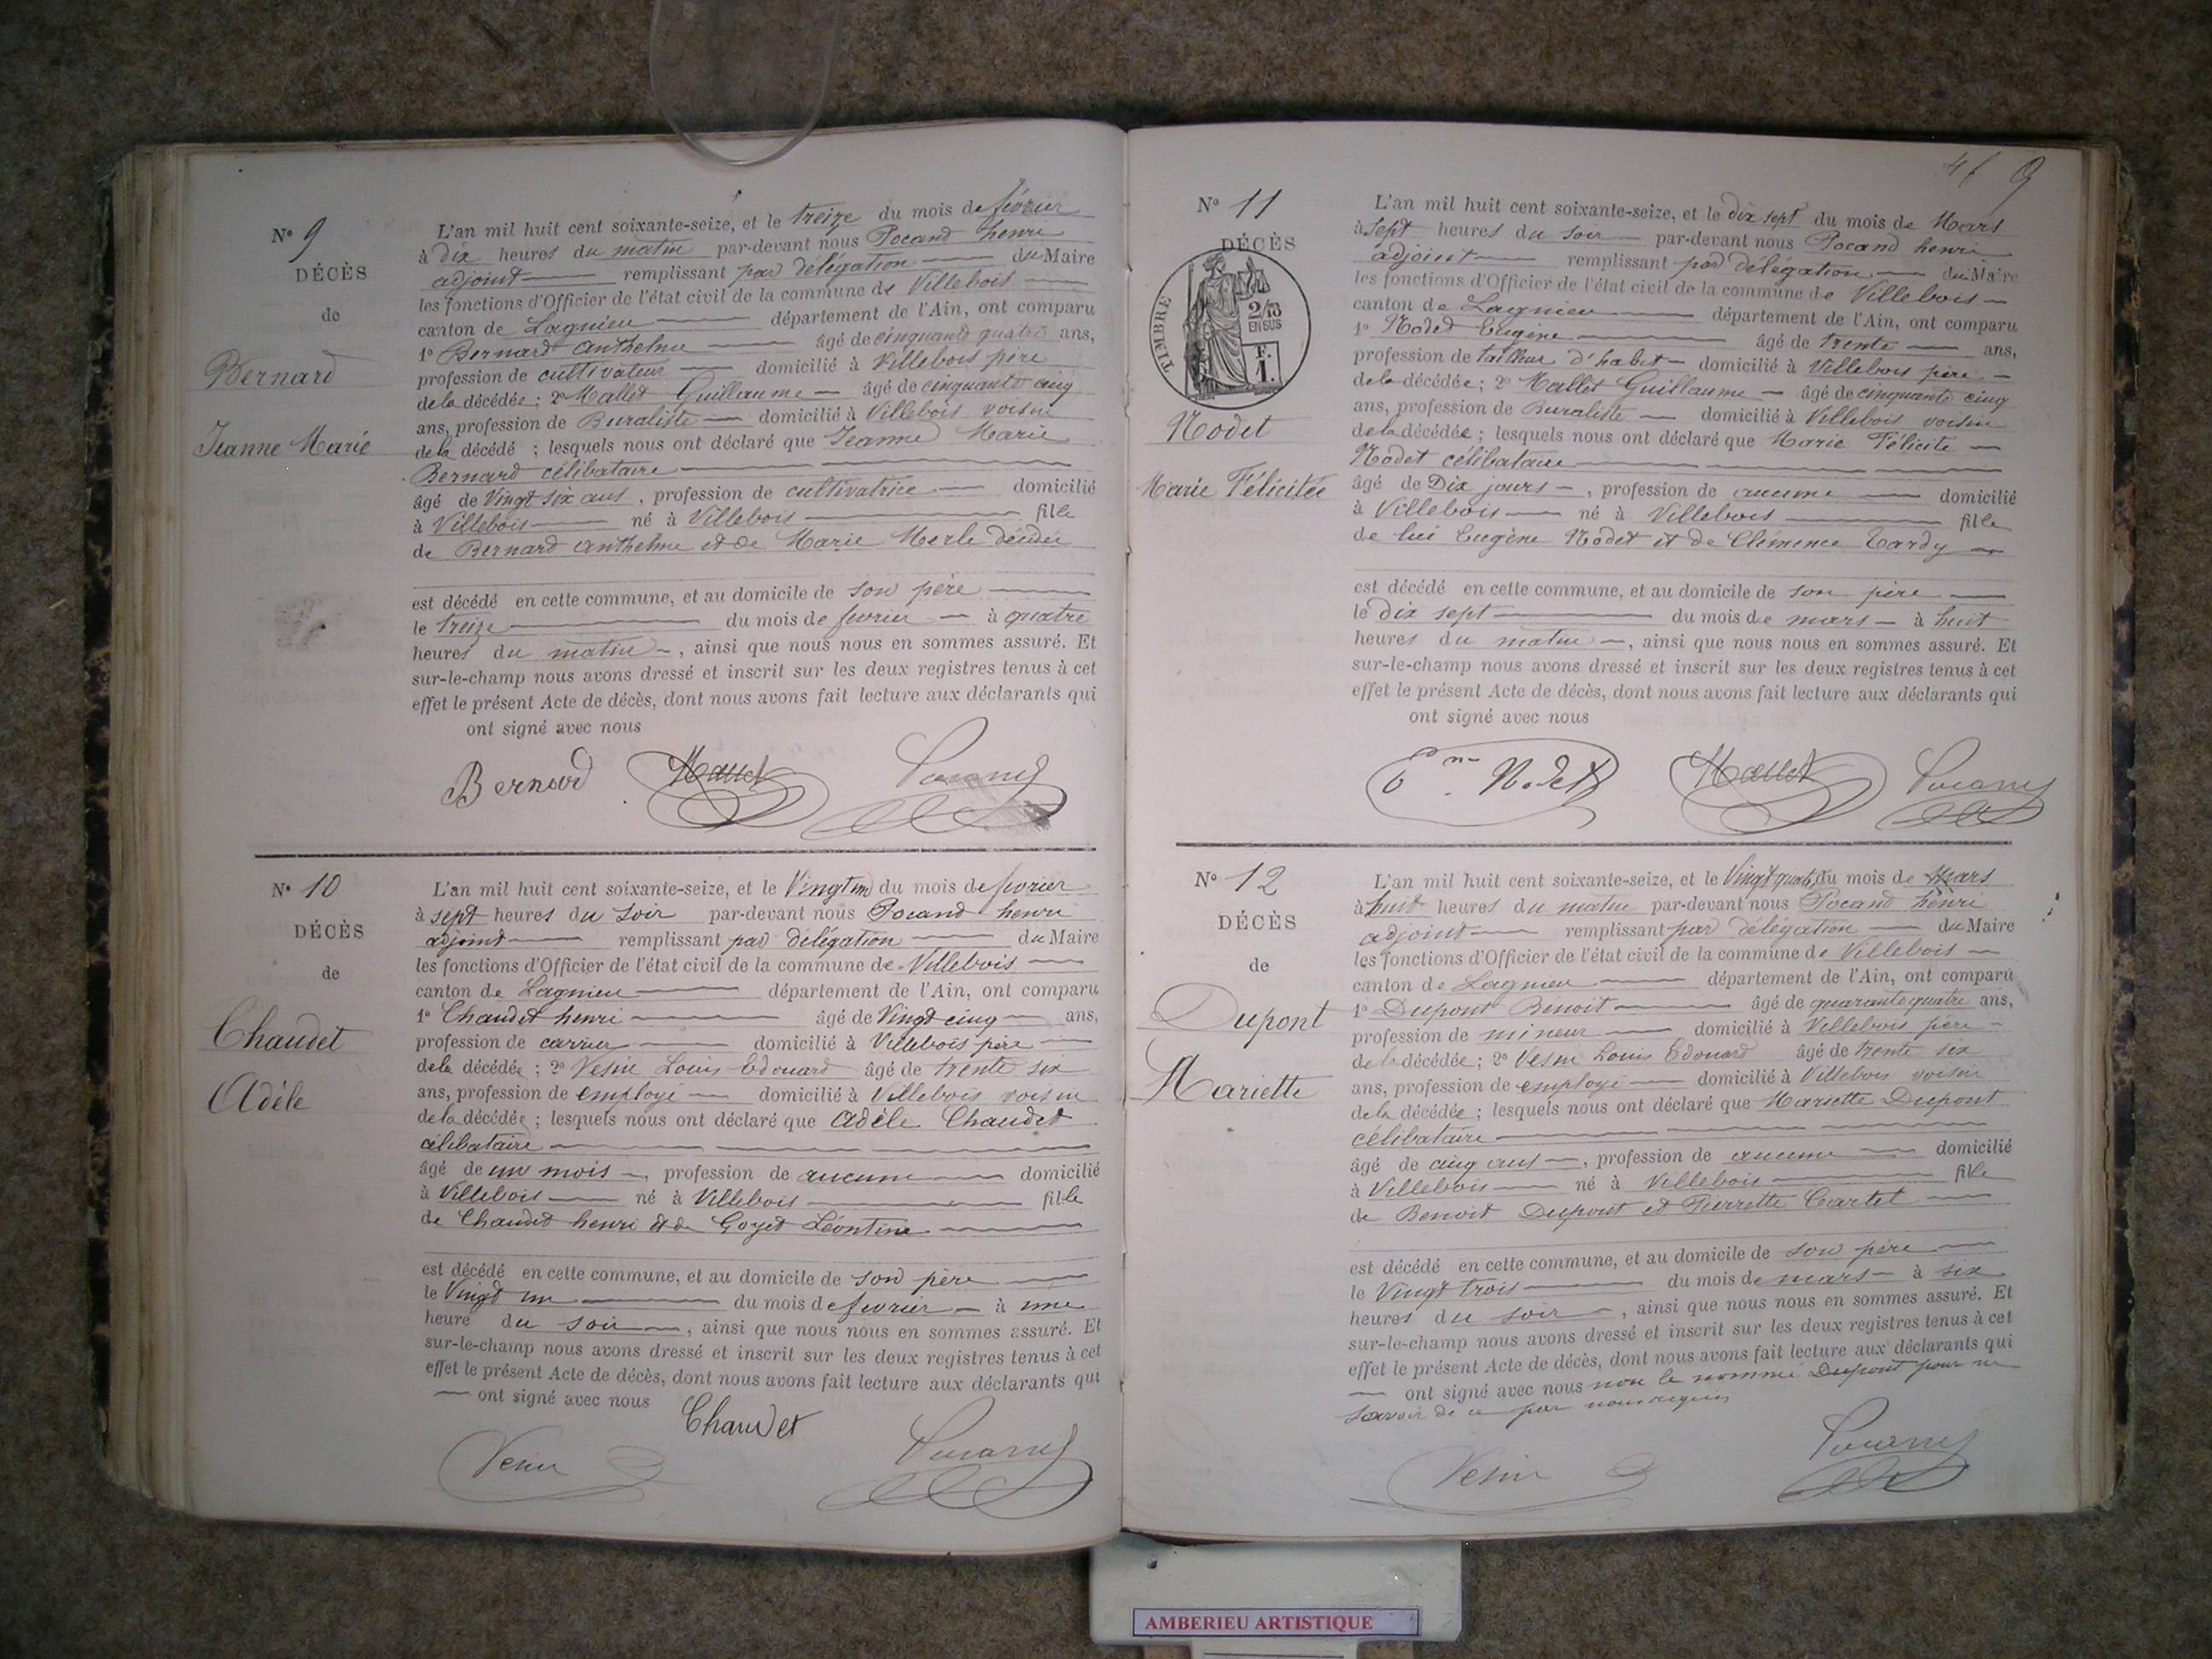 N° 9
DÉCÈS
de
Bernard
Jeanne Marie
L'an mil huit cent soixante-seize, et le treize du mois de février
à dix heures du matin par-devant nous Pocand henri
adjoint remplissant par délégation du Maire
les fonctions d'Officier de l'état civil de la commune de Villebois
canton de Lagnieu département de l'Ain, ont comparu
1° Bernard Anthelme âgé de cinquante quatre ans,
profession de cultivateur domicilié à Villebois père
de la décédée ; 2° Mallet Guillaume âgé de cinquante cinq
ans, profession de Buraliste domicilié à Villebois voisin
de la décédé ; lesquels nous ont déclaré que Jeanne Marie
Bernard célibataire
âgé de Vingt six ans, profession de cultivatrice domicilié
à Villebois né à Villebois fille
de Bernard Anthelme et de Marie Merle décédée
est décédé en cette commune, et au domicile de son père
le treize du mois de fevrier à quatre
heures du matin, ainsi que nous nous en sommes assuré. Et
sur-le-champ nous avons dressé et inscrit sur les deux registres tenus à cet
effet le présent Acte de décès, dont nous avons fait lecture aux déclarants qui
ont signé avec nous
Bernard Mallet Pocand
N° 10
DÉCÈS
de
Chaudet
Adèle
L'an mil huit cent soixante-seize, et le Vingt un du mois de fevrier
à sept heures du soir par-devant nous Pocand henri
adjoint remplissant par délégation du Maire
les fonctions d'Officier de l'état civil de la commune de Villebois
canton de Lagnieu département de l'Ain, ont comparu
1° Chaudet henri âgé de Vingt cinq ans,
profession de carrier domicilié à Villebois père
de la décédée ; 2° Vesin Louis Edouard âgé de trente six
ans, profession de employé domicilié à Villebois voisin
de la décédée ; lesquels nous ont déclaré que Adèle Chaudet
célibataire
âgé de un mois, profession de aucune domicilié
à Villebois né à Villebois fille
de Chaudet henri et de Goyet Léontine
est décédé en cette commune, et au domicile de son père
le Vingt un du mois de fevrier à une
heure du soir, ainsi que nous nous en sommes assuré. Et
sur-le-champ nous avons dressé et inscrit sur les deux registres tenus à cet
effet le présent Acte de décès, dont nous avons fait lecture aux déclarants qui
ont signé avec nous
Chaudet
Vesin Pocand
9
N° 11
DÉCÈS
TIMBRE
2/10
EN SUS
F.
1.
Nodet
Marie Félicitée
L'an mil huit cent soixante-seize, et le dix sept du mois de Mars
à sept heures du soir par-devant nous Pocand henri
adjoint remplissant par délégation du Maire
les fonctions d'Officier de l'état civil de la commune de Villebois
canton de Lagnieu département de l'Ain, ont comparu
1° Nodet Eugène âgé de trente ans,
profession de tailleur d'habit domicilié à Villebois père
de la décédée ; 2° Mallet Guillaume âgé de cinquante cinq
ans, profession de Buraliste domicilié à Villebois voisin
de la décédée ; lesquels nous ont déclaré que Marie Félicite
Nodet célibataire
âgé de Dix jours, profession de aucune domicilié
à Villebois né à Villebois fille
de lui Eugène Nodet et de Clémence Tardy
est décédé en cette commune, et au domicile de son père
le dix sept du mois de mars à huit
heures du matin, ainsi que nous nous en sommes assuré. Et
sur-le-champ nous avons dressé et inscrit sur les deux registres tenus à cet
effet le présent Acte de décès, dont nous avons fait lecture aux déclarants qui
ont signé avec nous
Nodet Mallet Pocand
N° 12
DÉCÈS
de
Dupont
Mariette
L'an mil huit cent soixante-seize, et le Vingt quatre du mois de Mars
à huit heures du matin par-devant nous Pocand henri
adjoint remplissant par délégation du Maire
les fonctions d'Officier de l'état civil de la commune de Villebois
canton de Lagnieu département de l'Ain, ont comparu
1° Dupont Benoit âgé de quarante quatre ans,
profession de mineur domicilié à Villebois père
de la décédée ; 2° Vesin Louis Edouard âgé de trente six
ans, profession de employé domicilié à Villebois voisin
de la décédée ; lesquels nous ont déclaré que Mariette Dupont
célibataire
âgé de cinq ans, profession de aucune domicilié
à Villebois né à Villebois fille
de Benoit Dupont et Pierrette Cartet
est décédé en cette commune, et au domicile de son père
le Vingt trois du mois de mars à six
heures du soir, ainsi que nous nous en sommes assuré. Et
sur-le-champ nous avons dressé et inscrit sur les deux registres tenus à cet
effet le présent Acte de décès, dont nous avons fait lecture aux déclarants qui
ont signé avec nous non le nommé Dupont pour ne
savoir de ce par nous requis
Vesin Pocand
AMBERIEU ARTISTIQUE